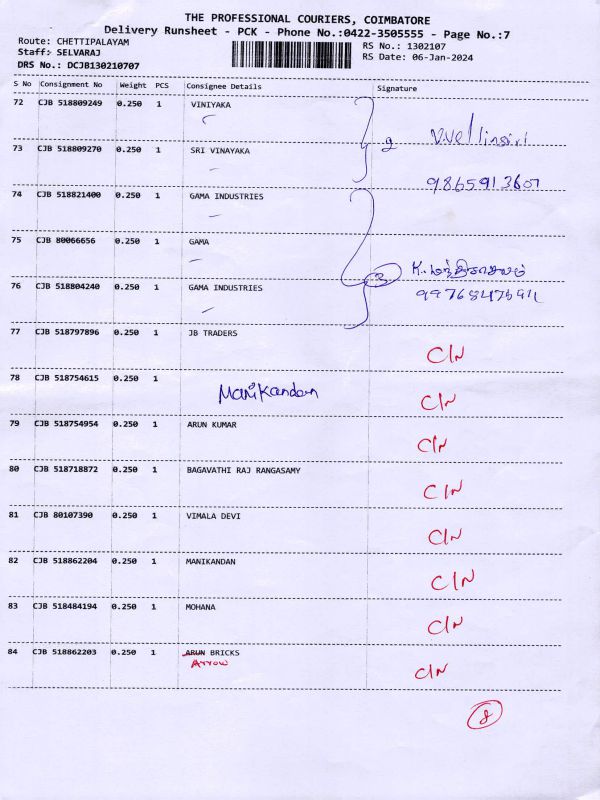 THE PROFESSIONAL COURIERS, COIMBATORE
Delivery Runsheet - PCK - Phone No.:0422-3505555 - Page No.:7
Route: CHETTIPALAYAM
RS No.: 1302107
Staff: SELVARAJ
RS Date: 06-Jan-2024
DRS No.: DCJB130210707
S No Consignment No Weight PCS Consignee Details Signature
72 CJB 518809249 0.250 1 VINIYAKA
V.Vellingiri
2
73 CJB 518809270 0.250 1 SRI VINAYAKA
9865913607
74 CJB 518821400 0.250 1 GAMA INDUSTRIES
75 CJB 80066656 0.250 1 GAMA
3
76 CJB 518804240 0.250 1 GAMA INDUSTRIES
77 CJB 518797896 0.250 1 JB TRADERS
C/N
78 CJB 518754615 0.250 1
Manikandan
C/N
79 CJB 518754954 0.250 1 ARUN KUMAR
C/N
80 CJB 518718872 0.250 1 BAGAVATHI RAJ RANGASAMY
C/N
81 CJB 80107390 0.250 1 VIMALA DEVI
C/N
82 CJB 518862204 0.250 1 MANIKANDAN
C/N
83 CJB 518484194 0.250 1 MOHANA
C/N
84 CJB 518862203 0.250 1 ARUN BRICKS
Arrow
C/N
8